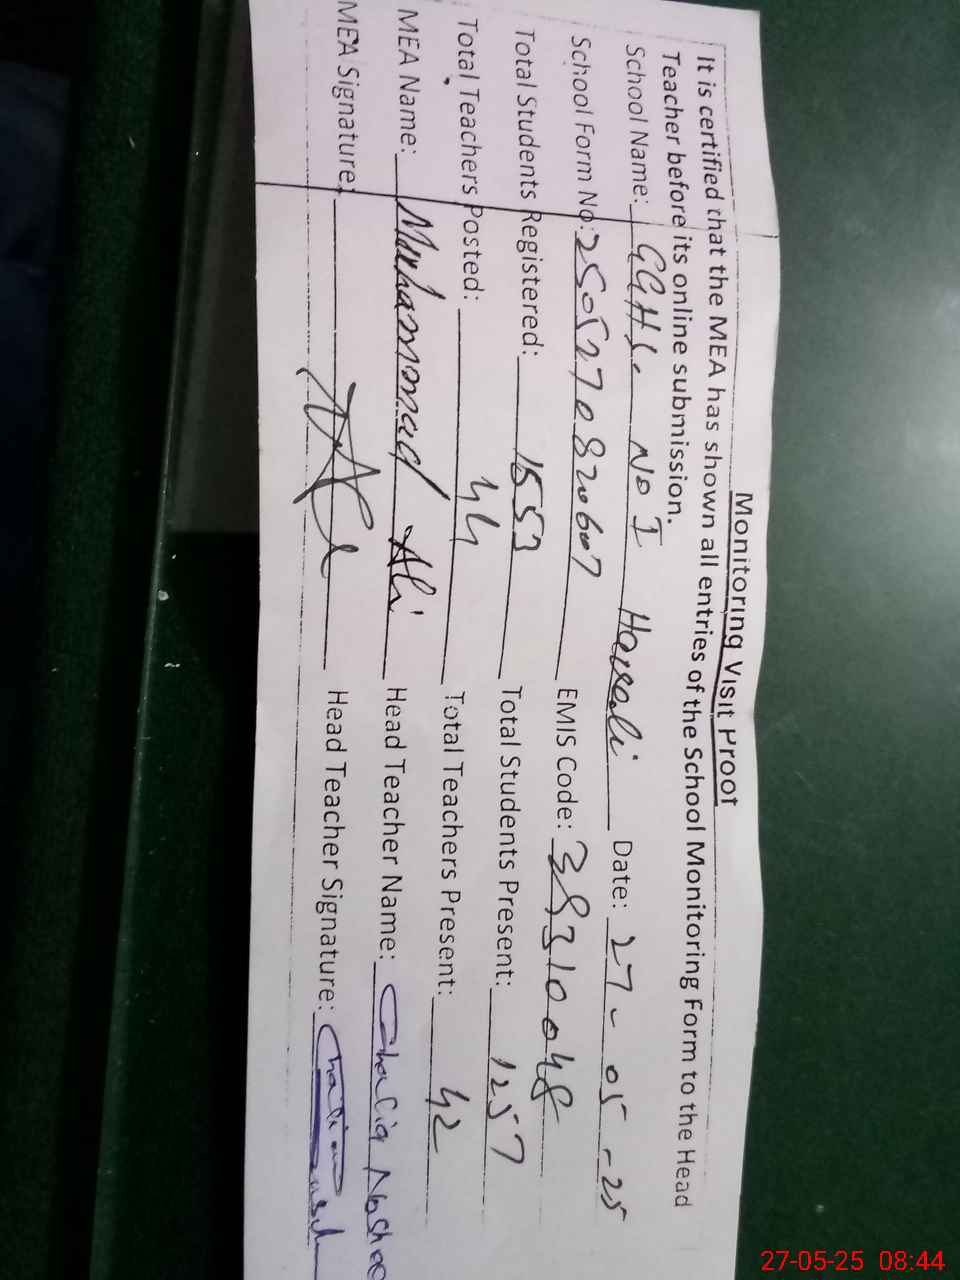 Monitoring Visit Proof
It is certified that the MEA has shown all entries of the School Monitoring Form to the Head
Teacher before its online submission.
School Name: GGHS. NO I Haveali Date: 27-05-25
School Form No: 25052708206007 EMIS Code: 38310048
Total Students Registered: 1553 Total Students Present: 1257
Total Teachers Posted: 44 Total Teachers Present: 42
MEA Name: Muhammad Ali Head Teacher Name:
MEA Signature: Head Teacher Signature:
27-05-25 08:44